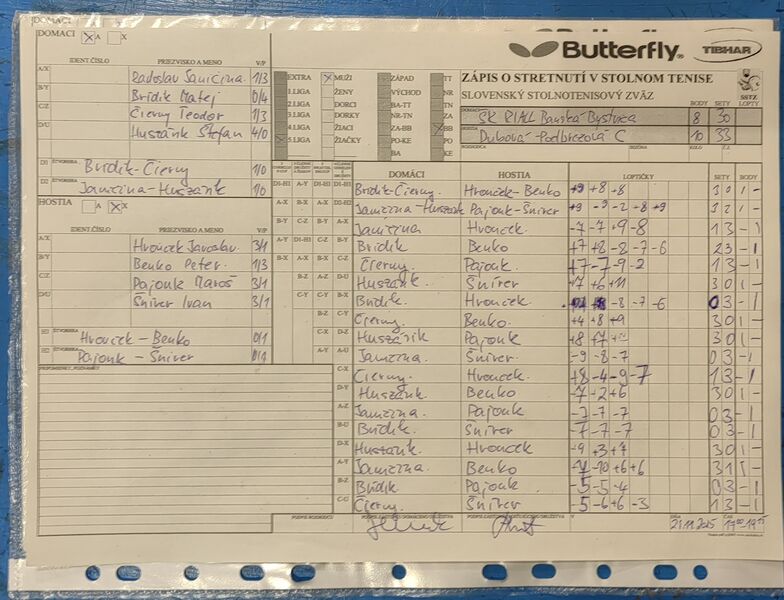 DOMACI
DOMACI X A X
IDENT.ČÍSLO PRIEZVISKO A MENO V/P
A/X Radoslav Jamičina 1/3
B/Y Brídik Matej 0/4
C/Z Čierny Teodor 1/3
D/U Huszánk Štefan 4/0
D1 ŠTVORHRA Brídik-Čierny 1/0
D2 ŠTVORHRA Jamičina-Huszánk 1/0
HOSTIA A X X
IDENT.ČÍSLO PRIEZVISKO A MENO V/P
A/X Hronček Jaroslav 3/1
B/Y Benko Peter 1/3
C/Z Pajonk Maroš 3/1
D/U Šnírer Ivan 3/1
H1 ŠTVORHRA Hronček - Benko 0/1
H2 ŠTVORHRA Pajonk - Šnírer 0/1
PRIPOMIENKY, POZNÁMKY
Butterfly TIBHAR
ZÁPIS O STRETNUTÍ V STOLNOM TENISE
SLOVENSKÝ STOLNOTENISOVÝ ZVÄZ
SSTZ
EXTRA X MUŽI ZÁPAD TT
1.LIGA ŽENY VÝCHOD NR
2.LIGA DORCI BA-TT TN
3.LIGA DORKY NR-TN ZA
4.LIGA ŽIACI ZA-BB X BB
5.LIGA ŽIAČKY PO-KE PO
BA KE
BODY SETY LOPTY
DOMÁCI ŠK RIALL Banská Bystrica 8 30
HOSTIA Dubová-Podbrezová C 10 33
ROZHODCA DIVÍZIA KOLO Č.Z.
DOMÁCI HOSTIA LOPTIČKY SETY BODY
Brídik-Čierny Hronček-Benko +9 +8 +8 3 0 1 -
Jamičina-Huszánk Pajonk-Šnírer +9 -9 -2 +8 +9 3 2 1 -
Jamičina Hronček -7 -7 +9 -8 1 3 - 1
Brídik Benko +7 +8 -8 -7 -6 2 3 - 1
Čierny Pajonk +7 -7 -9 -2 1 3 - 1
Huszánk Šnírer +7 +6 +11 3 0 1 -
Brídik Hronček -8 -7 -6 0 3 - 1
Čierny Benko +4 +8 +9 3 0 1 -
Huszánik Pajonk +8 +7 3 0 1 -
Jamičina Šnírer -9 -8 -7 0 3 - 1
Čierny Hronček +8 -4 -9 -7 1 3 - 1
Huszánk Benko +7 +2 +6 3 0 1 -
Jamičina Pajonk -7 -7 -7 0 3 - 1
Brídik Šnírer -7 -7 -7 0 3 - 1
Huszánk Hronček +9 +3 +7 3 0 1 -
Jamičina Benko -10 +6 +6 3 1 1 -
Brídik Pajonk -5 -5 -4 0 3 - 1
Čierny Šnírer -5 -6 +6 -3 1 3 - 1
PODPIS ROZHODCU PODPIS ZÁSTUPCU DOMÁCEHO DRUŽSTVA PODPIS ZÁSTUPCU HOSŤUJÚCEHO DRUŽSTVA V DŇA 21.11.2025 ČAS 17:00-19:15